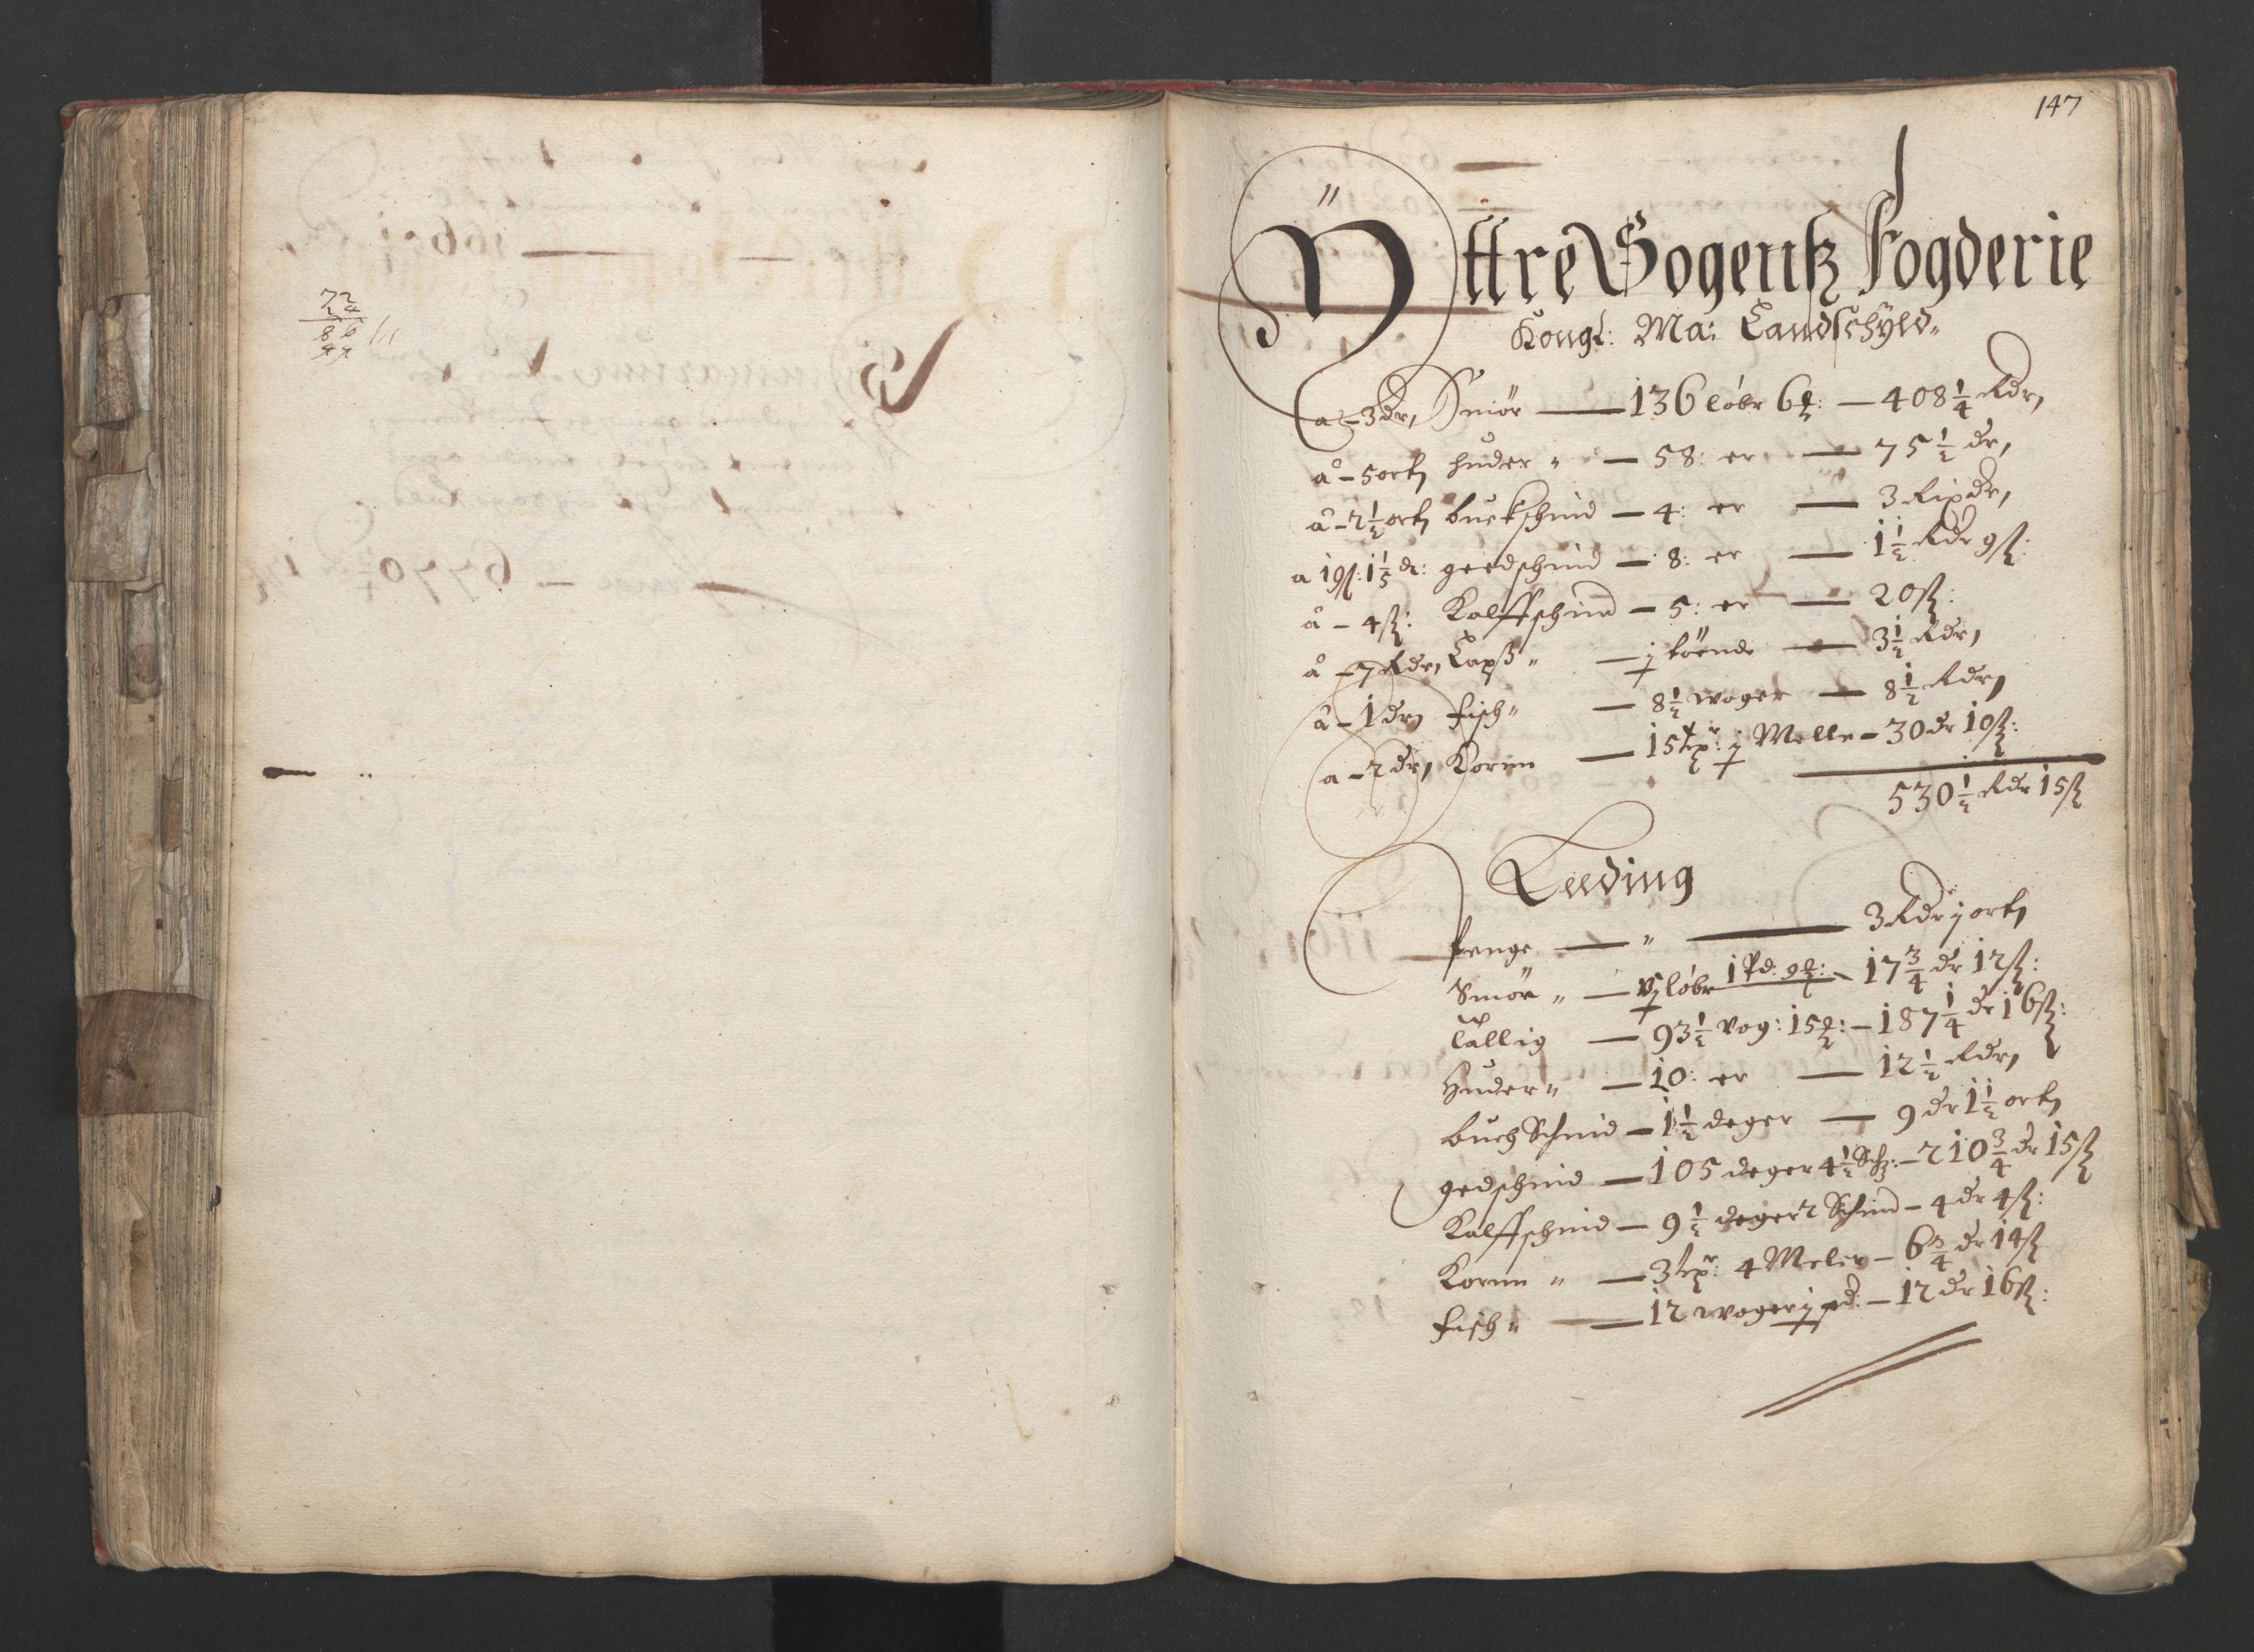 147
Ÿttre Sogenß Fogderie
Kongl: Ma: Landschÿld„
a – 3 dr, Smör — 136 löbr 6 ℔: — 408 1/4 Rdr,
å – 5 ort, huder „ — 58: er — 75 1/2 dr,
å – 2 1/2 ort, buckschind — 4: er — 3 Rixdr,
a 19ß: 1 1/5 d: geedschind — 8: er — 1 1/2 Rdr 9ß:
å – 4ß: Kalffschind — 5: er — 20ß:
å – 7 Rdr, Laxß „ — j tönde — 3 1/2 Rdr,
å – 1 dr, fisch „ — 8 1/2 woger — 8 1/2 Rdr,
a – 2 dr, Kornn — 15 tpr: j Melle – 30 dr 10ß:
530 1/2 Rdr 15ß
Leeding
penge — „ — 3 Rdr j ort,
Smör „ — vj löbr 1 Pd. 9 ℔: 17 3/4 dr 12ß:
tallig — 93 1/2 Vog: 15 ℔: – 187 1/4 dr 16ß:
Huder „ — 10: er — 12 1/2 Rdr,
buch Schind — 1 1/2 deger — 9 dr 1 1/2 ort,
gedschind — 105 deger 4 1/2 Sch: – 210 3/4 dr 15ß
Kalffschind — 9 1/2 deger 2 Schind – 4 dr 4ß:
Kornn „ — 3 tpr: 4 Meler – 6 3/4 dr 14ß
fisch „ — 12 woger j pd: – 12 dr 16ß: